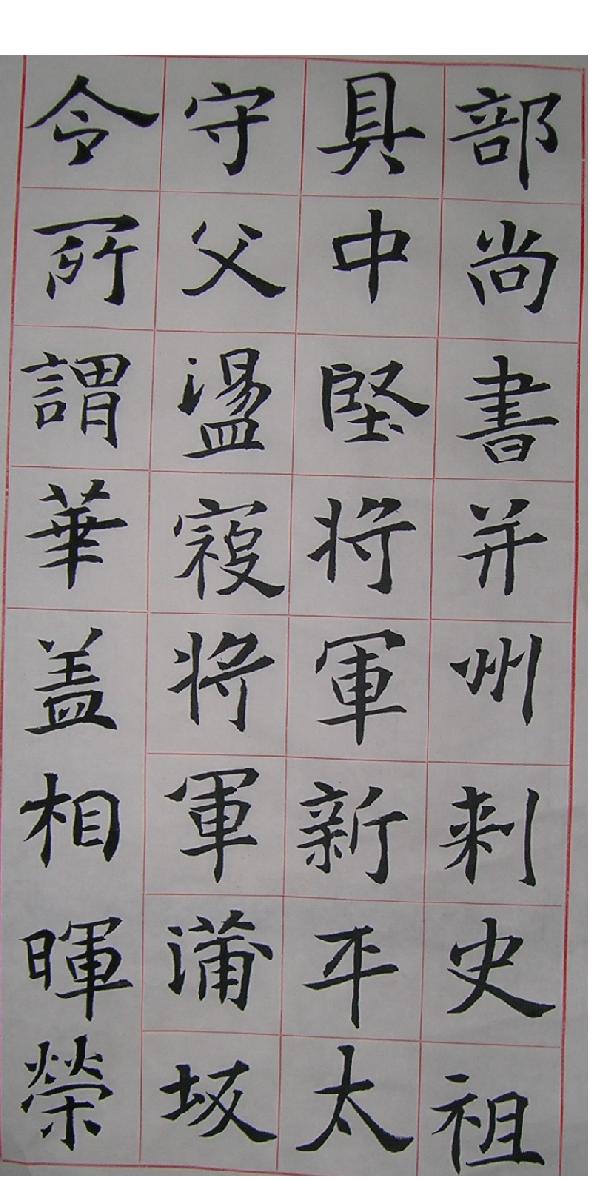 部尚書并州刺史祖
具中堅将軍新平太
守父盪寇将軍蒲坂
令所謂華盖相暉榮